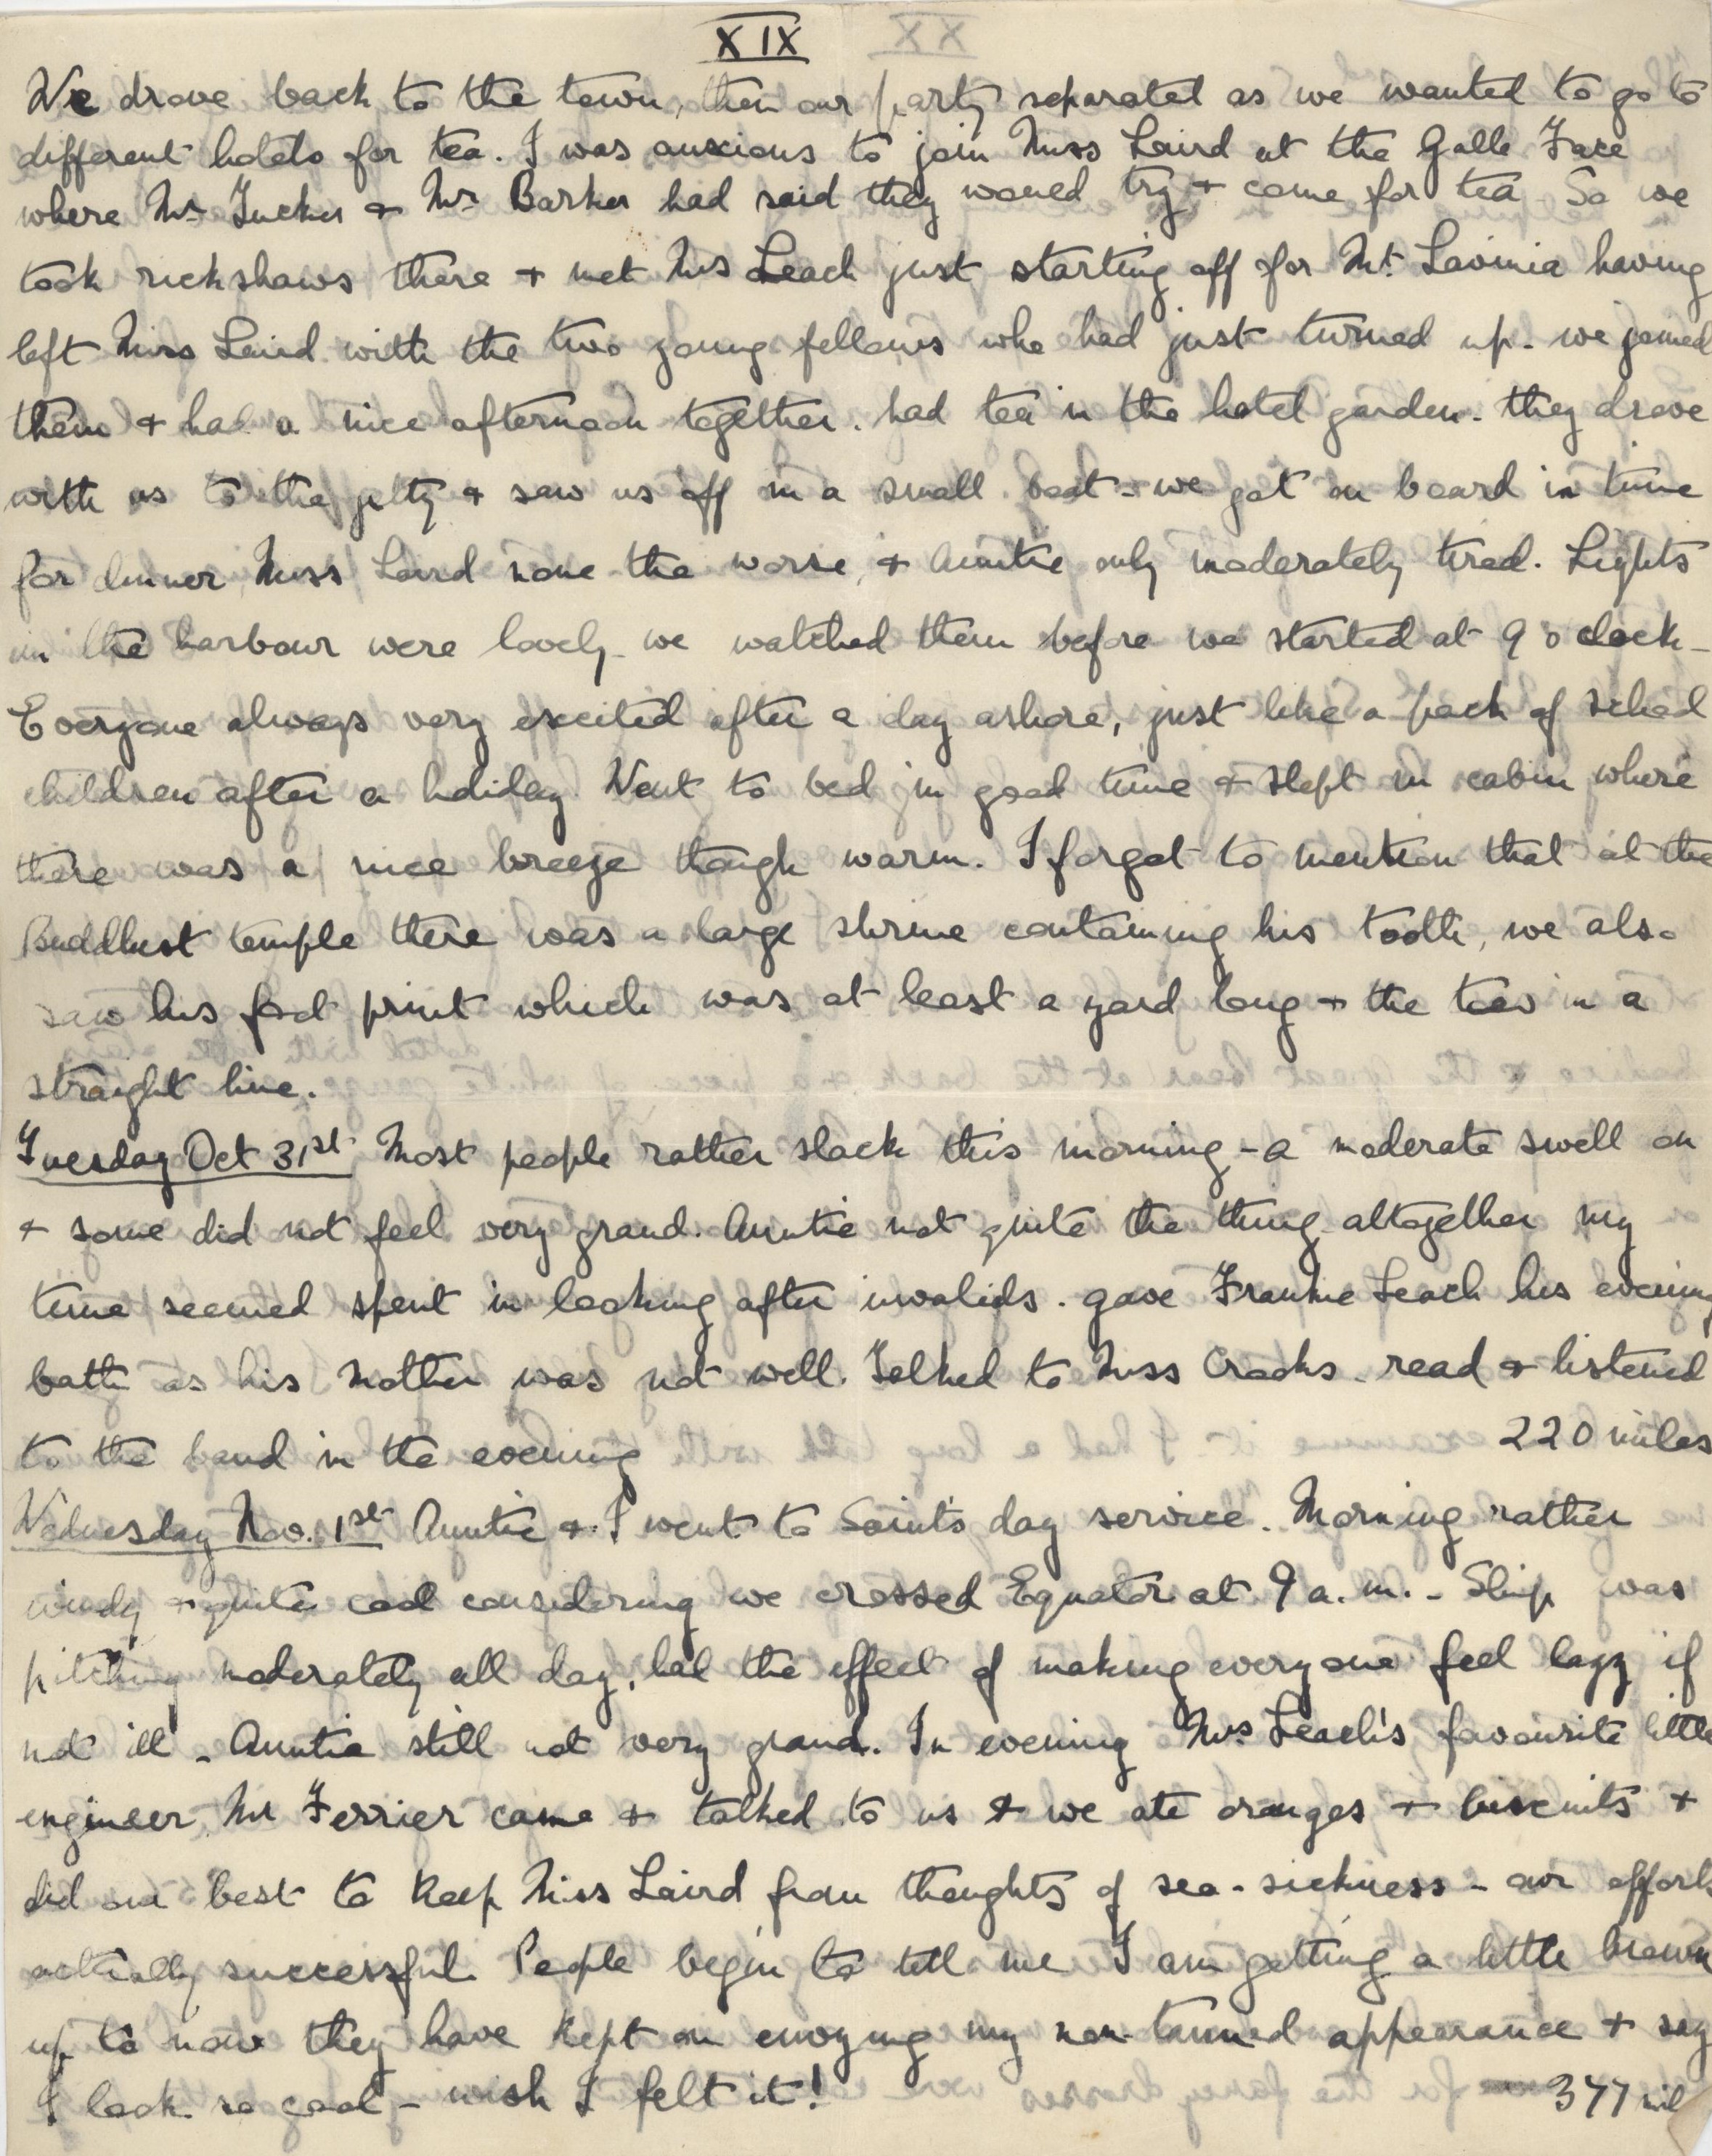 XIX
We drove back to the town, then our party separated as we wanted to go to
different hotels for tea. I was anxious to join Miss Laird at the Galle Face
where Mr Tucker & Mr Barker had said they would try & come for tea So we
took rickshaws there & met Mrs Leach just starting off for Mt. Lavinia having
left Miss Laird with the two young fellows who had just turned up - we joined
them & had a nice afternoon together. had tea in the hotel garden. they drove
with us to the jetty & saw us off in a small boat - we got on board in time
for dinner, Miss Laird none the worse, & Auntie only moderately tired. Lights
in the harbour were lovely - we watched them before we started at 9 o'clock -
Everyone always very excited after a day ashore, just like a pack of school
children after a holiday. Went to bed in good time & slept in cabin where
there was a nice breeze though warm. I forgot to mention that at the
Buddhist temple there was a large shrine containing his tooth, we also
saw his foot print which was at least a yard long & the toes in a
straight line.
Tuesday Oct 31st Most people rather slack this morning - a moderate swell on
& some did not feel very grand. Auntie not quite the thing - altogether my
time seemed spent in looking after invalids. gave Frankie Leach his evening
bath as his mother was not well. Talked to Miss Crooks. read & listened
to the band in the evening 220 miles
Wednesday Nov. 1st Auntie & I went to Saint's day service. Morning rather
windy & quite cool considering we crossed Equator at 9 a.m. - Ship was
pitching moderately all day, had the effect of making everyone feel lazy if
not ill - Auntie still not very grand. In evening Mrs Leach's favourite little
engineer, Mr Ferrier came & talked to us & we ate oranges & biscuits &
did our best to keep Miss Laird from thoughts of sea-sickness - our efforts
actually successful. People begin to tell me I am getting a little brown
up to now they have kept on envying my non-tanned appearance & say
I look so cool - wish I felt it! 377 mil